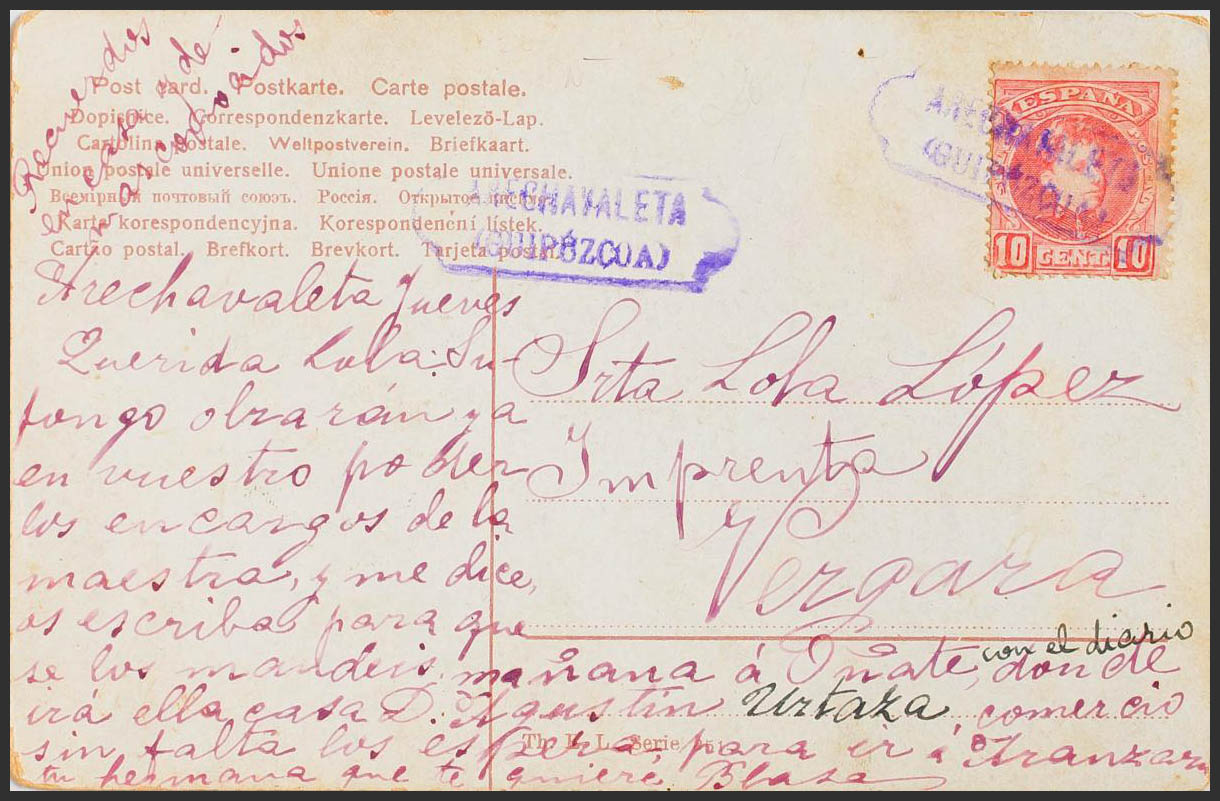 Recuerdos
en casa de
Post card. Postkarte. Carte postale.
Dopisnice. Correspondenzkarte. Levelező-Lap.
Cartolina postale. Weltpostverein. Briefkaart.
Union postale universelle. Unione postale universale.
Всемірный почтовый союзъ. Россія. Открытое
Karta korespondencyjna. Korespondenční lístek.
Cartão postal. Brefkort. Brevkort. Tarjeta postal.
ARECHAVALETA
(GUIPÚZCOA)
ARECHAVALETA
(GUIPÚZCOA)
ESPAÑA
10 CENT. 10
Arechavaleta Jueves
Querida Lola: Su-
pongo obrarán ya
en vuestro poder
los encargos de la
maestra, y me dice,
os escriba para que
se los mandeis, mañana á Oñate, donde
con el diario
irá ella casa D. Agustín Urtaza comercio
sin falta los espera, para ir á Aranzazu
tu hermana que te quiere, Blasa
Srta Lola López
Imprenta
Vergara
Th. E. L. Serie